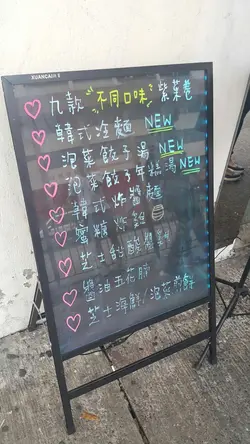 九款 不同口味 紫菜卷
韓式冷麵 NEW
泡菜餃子湯 NEW
泡菜餃子年糕湯 NEW
韓式炸醬麵
蜜糖炸雞
芝士
醬油五花腩
芝士海鮮/泡菜煎餅